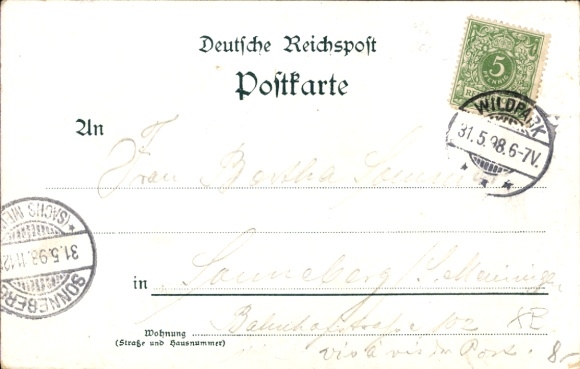 Deutsche Reichspost
Postkarte
5
PFENNIG
WILDPARK
31.5.98.6-7V.
An
Frau Bertha
(SACHS. MEIN
31.5.98.11-12
SONNEBERG
in Sonneberg S. Meiningen
Bahnhofstraße 102
Wohnung
(Straße und Hausnummer)
vis à vis Post.
8